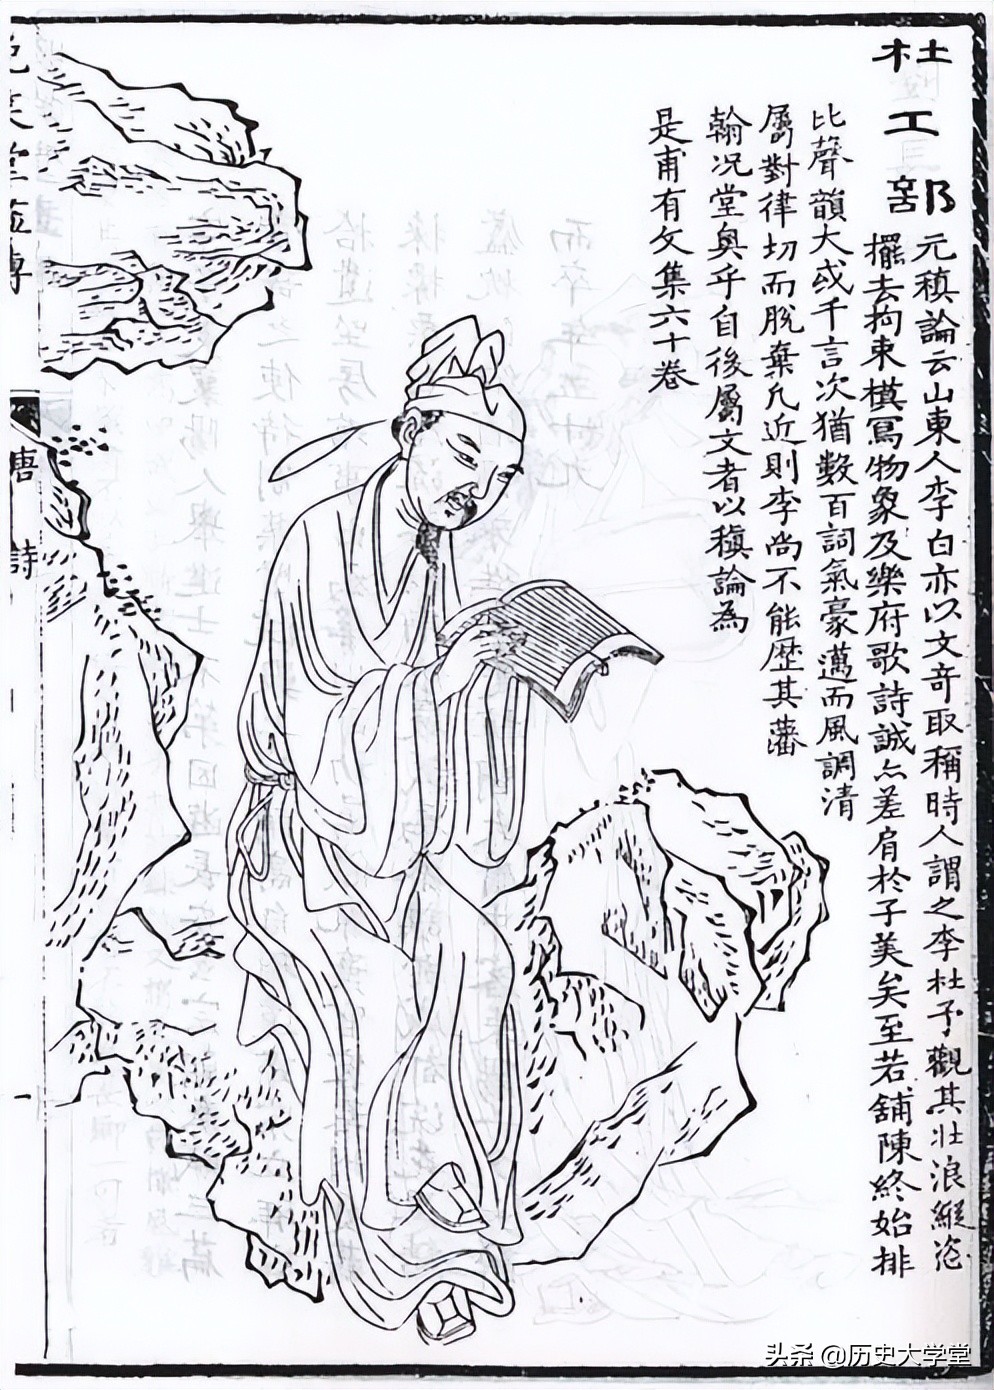 杜工部
元稹論云山東人李白亦以文奇取稱時人謂之李杜予觀其壯浪縱恣
擺去拘束模寫物象及樂府歌詩誠亦差肩於子美矣至若鋪陳終始排
比聲韻大或千言次猶數百詞氣豪邁而風調清
屬對律切而脫棄凡近則李尚不能歷其藩
翰況堂奧乎自後屬文者以稹論為
是甫有文集六十卷
唐詩
头条 @历史大学堂